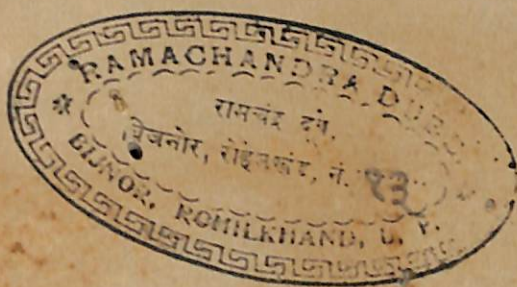 RAMACHANDRA
रामचंद्र
बिजनोर, रोहेलखंड, नं. १३
BIJNOR, ROHILKHAND, U. P.